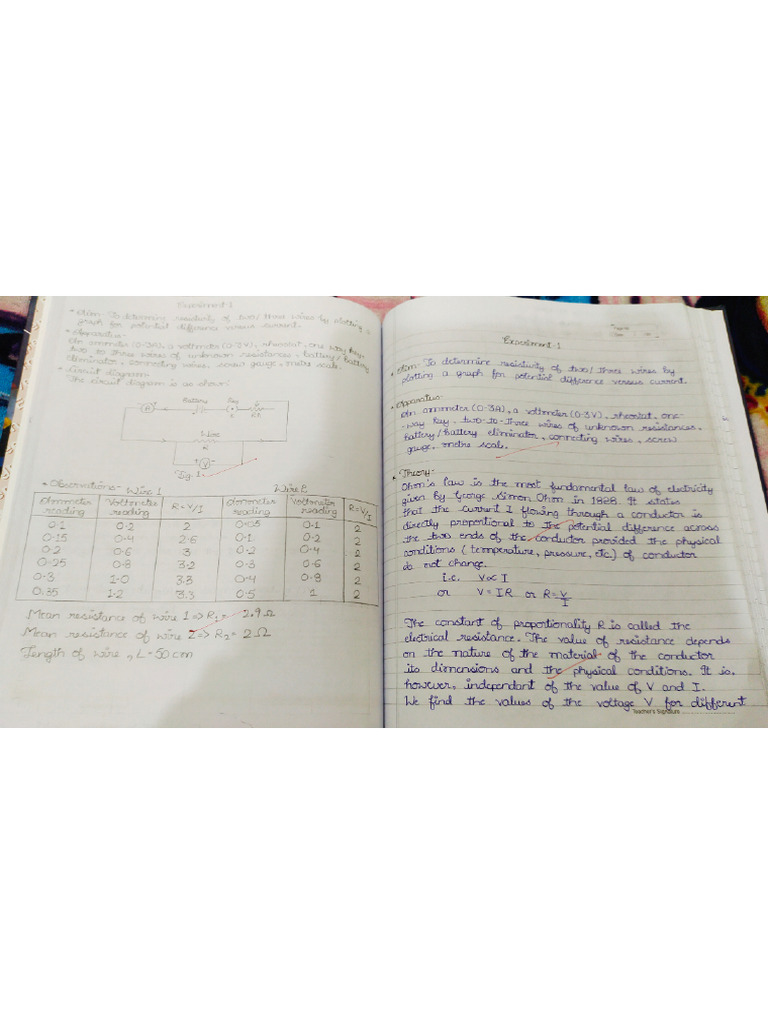 Experiment 1
• Aim- To determine resistivity of two/three wires by plotting a
graph for potential difference versus current.
• Apparatus-
An ammeter (0-3A), a voltmeter (0-3V), rheostat, one way key,
two to three wires of unknown resistances, battery/battery
eliminator, connecting wires, screw gauge, metre scale.
• Circuit diagram-
The circuit diagram is as shown:
Battery Key
A
K Rh
Wire
R
V
Fig. 1.
• Observations- Wire 1 Wire 2
Ammeter reading Voltmeter reading R=V/I Ammeter reading Voltmeter reading R=V/I
0.1 0.2 2 0.05 0.1 2
0.15 0.4 2.6 0.1 0.2 2
0.2 0.6 3 0.2 0.4 2
0.25 0.8 3.2 0.3 0.6 2
0.3 1.0 3.3 0.4 0.8 2
0.35 1.2 3.3 0.5 1 2
Mean resistance of wire 1 => R₁ = 2.9 Ω
Mean resistance of wire 2 => R₂ = 2 Ω
Length of wire, L = 50 cm
Experiment 1
• Aim- To determine resistivity of two/three wires by
plotting a graph for potential difference versus current.
• Apparatus-
An ammeter (0-3A), a voltmeter (0-3V), rheostat, one-
-way key, two-to-three wires of unknown resistances,
battery/battery eliminator, connecting wires, screw
gauge, metre scale.
• Theory-
Ohm's law is the most fundamental law of electricity
given by George Simon Ohm in 1828. It states
that the current I flowing through a conductor is
directly proportional to the potential difference across
the two ends of the conductor provided the physical
conditions (temperature, pressure, etc.) of conductor
do not change.
i.e. V ∝ I
or V = IR or R = V/I
The constant of proportionality R is called the
electrical resistance. The value of resistance depends
on the nature of the material of the conductor
its dimensions and the physical conditions. It is,
however, independant of the value of V and I.
We find the values of the voltage V for different
Teacher's Signature